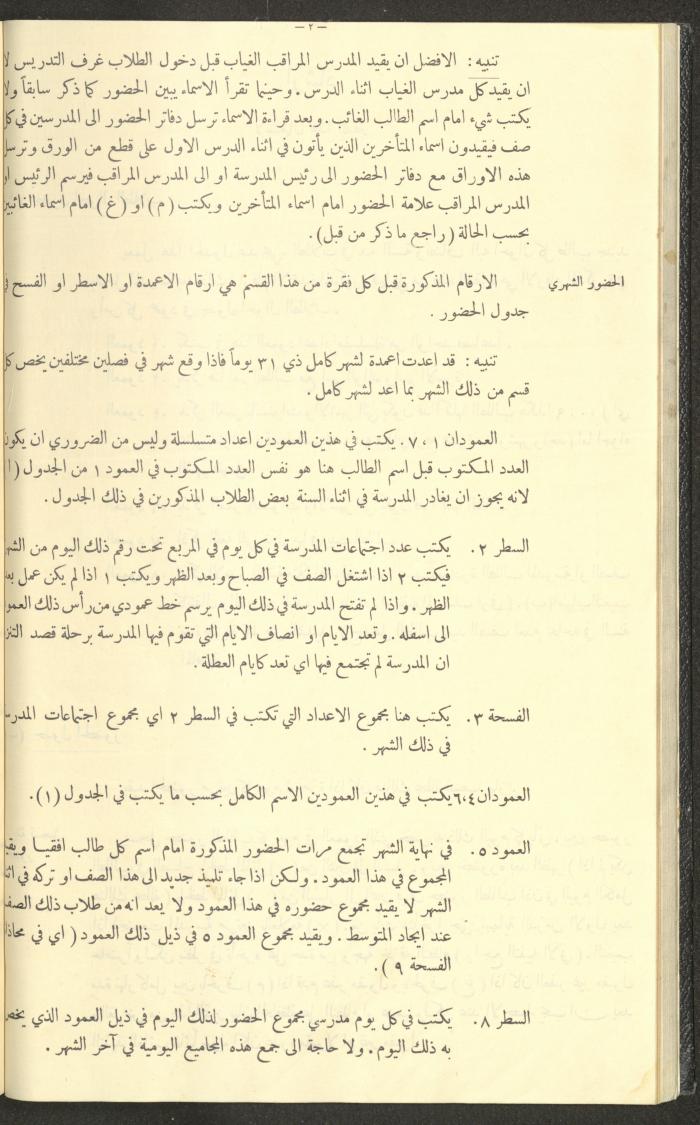 — ٢ —
تنبيه : الافضل ان يقيد المدرس المراقب الغياب قبل دخول الطلاب غرف التدريس لا
ان يقيد كل مدرس الغياب اثناء الدرس . وحينما تقرأ الاسماء يبين الحضور كما ذكر سابقاً ولا
يكتب شيء امام اسم الطالب الغائب . وبعد قراءة الاسماء ترسل دفاتر الحضور الى المدرسين في كل
صف فيقيدون اسماء المتأخرين الذين يأتون في اثناء الدرس الاول على قطع من الورق وترسل
هذه الاوراق مع دفاتر الحضور الى رئيس المدرسة او الى المدرس المراقب فيرسم الرئيس او
المدرس المراقب علامة الحضور امام اسماء المتأخرين ويكتب ( م ) او ( غ ) امام اسماء الغائبين
بحسب الحالة ( راجع ما ذكر من قبل ) .
الحضور الشهري الارقام المذكورة قبل كل فقرة من هذا القسم هي ارقام الاعمدة او الاسطر او الفسح في
جدول الحضور .
تنبيه : قد اعدت اعمدة لشهر كامل ذي ٣١ يوماً فاذا وقع شهر في فصلين مختلفين يخص كل
قسم من ذلك الشهر بما اعد لشهر كامل .
العمودان ١ ، ٧ . يكتب في هذين العمودين اعداد متسلسلة وليس من الضروري ان يكون
العدد المكتوب قبل اسم الطالب هنا هو نفس العدد المكتوب في العمود ١ من الجدول
لانه يجوز ان يغادر المدرسة في اثناء السنة بعض الطلاب المذكورين في ذلك الجدول .
السطر ٢ . يكتب عدد اجتماعات المدرسة في كل يوم في المربع تحت رقم ذلك اليوم من الشهر
فيكتب ٢ اذا اشتغل الصف في الصباح وبعد الظهر ويكتب ١ اذا لم يكن عمل بعد
الظهر . واذا لم تفتح المدرسة في ذلك اليوم يرسم خط عمودي من رأس ذلك العمو
الى اسفله . وتعد الايام او انصاف الايام التي تقوم فيها المدرسة برحلة قصد التنز
ان المدرسة لم تجتمع فيها اي تعد كايام العطلة .
الفسحة ٣ . يكتب هنا مجموع الاعداد التي تكتب في السطر ٢ اي مجموع اجتماعات المدرس
في ذلك الشهر .
العمودان ٤،٦ يكتب في هذين العمودين الاسم الكامل بحسب ما يكتب في الجدول (١) .
العمود ٥ . في نهاية الشهر تجمع مرات الحضور المذكورة امام اسم كل طالب افقيا ويقيد
المجموع في هذا العمود . ولكن اذا جاء تلميذ جديد الى هذا الصف او تركه في اثنا
الشهر لا يقيد مجموع حضوره في هذا العمود ولا يعد انه من طلاب ذلك الصف
عند ايجاد المتوسط . ويقيد مجموع العمود ٥ في ذيل ذلك العمود ( اي في محاذا
الفسحة ٩ ) .
السطر ٨ . يكتب في كل يوم مدرسي مجموع الحضور لذلك اليوم في ذيل العمود الذي يخص
به ذلك اليوم . ولا حاجة الى جمع هذه المجاميع اليومية في آخر الشهر .